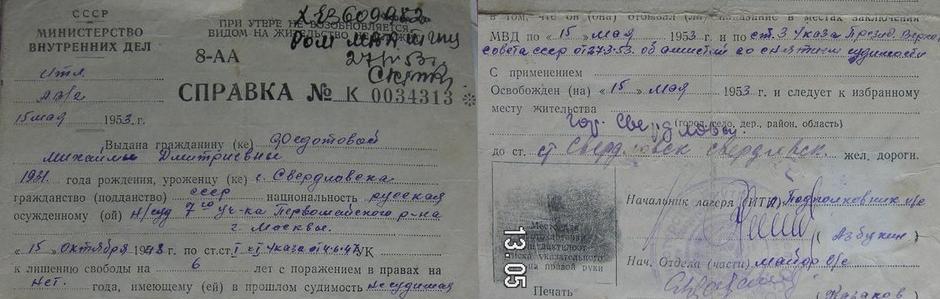 СССР
МИНИСТЕРСТВО
ВНУТРЕННИХ ДЕЛ
ИТЛ
15 мая 1953. г.
ПРИ УТЕРЕ НЕ ВОЗОБНОВЛЯЕТСЯ
ВИДОМ НА ЖИТЕЛЬСТВО НЕ
8-АА
27/V 53г.
СПРАВКА № К 0034313
Выдана гражданину (ке) Федотовой
Дмитриевны
1931. года рождения, уроженцу (ке) г. Свердловска
гражданство (подданство) СССР национальность русская
осужденному (ой) н/суд 7го уч-ка Первомайского р-на
г. Москвы.
« 15 » октября 1948 г. по ст.ст. УК
к лишению свободы на 6 лет с поражением в правах на
нет. года, имеющей (ей) в прошлом судимость не судимая
в том, что он (она) отбывал (ала) наказание в местах заключения
МВД по « 15 » мая 1953 г. и по ст. 3 Указа Презид. Верхов.
совета ссср от 27.3-53. об амнистии со снятием судимости
С применением
Освобожден (на) « 15 » мая 1953 г. и следует к избранному
месту жительства гор. Свердловск
(город, село, дер., район, область)
до ст. ст Свердловск Свердловск. жел. дороги.
Место для
указательного
на правой руки
Печать
Начальник лагеря (ИТК) Подполковник
(Азбукин)
Нач. Отдела (части) майор
(Казаков
13.05